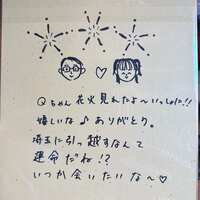 Qちゃん 花火見れたよ〜いっしょに!!
嬉しいな♪ありがとう。
埼玉に引っ越すなんて
運命だね!?
いつか会いたいな〜♡